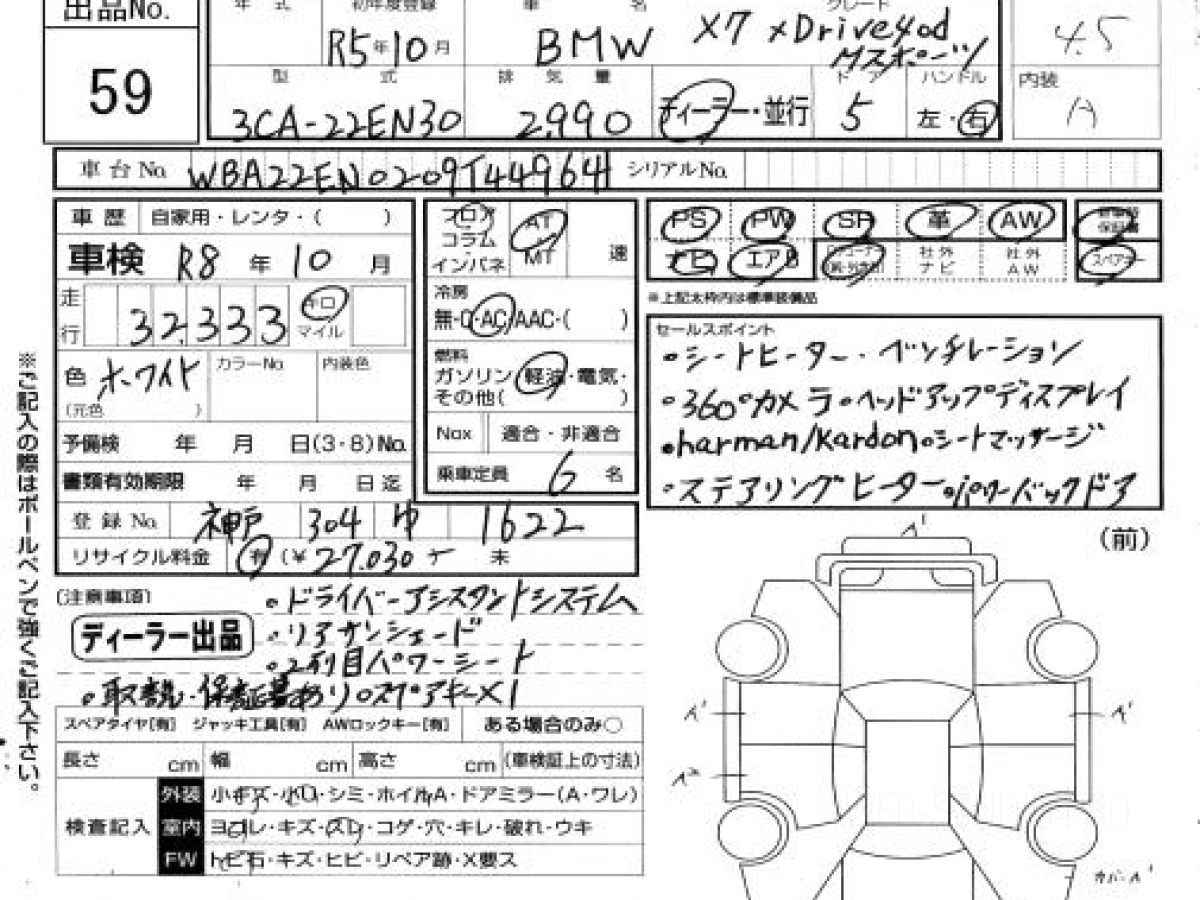 出品No.
59
年式 初年度登録 車名 グレード
R5年10月 BMW X7 xDrive40d Mスポーツ
4.5
型式 排気量 ドア ハンドル 内装
3CA-22EN30 2990 ディーラー・並行 5 左・右 A
車台No. WBA22EN0209T44964 シリアルNo.
車歴 自家用・レンタ・( )
車検 R8年10月
走行 32,333 キロ マイル
色 ホワイト カラーNo. 内装色
(元色 )
予備検 年 月 日(3・8)No.
書類有効期限 年 月 日迄
登録No. 神戸 304 ゆ 1622
リサイクル料金 有 (¥27,030 未
フロア コラム インパネ AT MT 速
冷房
無・C・AC/AAC・( )
燃料
ガソリン・軽油・電気・
その他( )
Nox 適合・非適合
乗車定員 6 名
PS PW SR 革 AW 保証書
ナビ エアB 社外ナビ 社外AW スペアキー
※上記太枠内は標準装備品
セールスポイント
・シートヒーター・ベンチレーション
・360°カメラ・ヘッドアップディスプレイ
・harman/kardon・シートマッサージ
・ステアリングヒーター・パワーバックドア
(注意事項)
・ドライバーアシスタントシステム
ディーラー出品
・リアサンシェード
・2列目パワーシート
・取説・保証書あり・スペアキー×1
スペアタイヤ[有] ジャッキ工具[有] AWロックキー[有] ある場合のみ○
長さ cm 幅 cm 高さ cm (車検証上の寸法)
検査記入
外装 小キズ・小凹・シミ・ホイルA・ドアミラー(A・ワレ)
室内 ヨゴレ・キズ・スレ・コゲ・穴・キレ・破れ・ウキ
FW トビ石・キズ・ヒビ・リペア跡・X要ス
※ご記入の際はボールペンで強くご記入下さい。
(前)
A1
A1
A1
A2
カバーA1